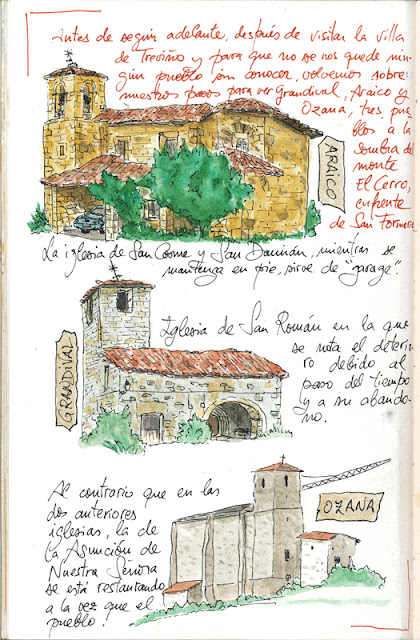 Antes de seguir adelante, después de visitar la villa
de Treviño y para que no se nos quede nin-
gún pueblo sin conocer, volvemos sobre
nuestros pasos para ver Grandival, Araico y
Ozana, tres pue-
blos a la
sombra del
monte
El Cerro,
enfrente
de San Formerio.
ARAICO
La iglesia de San Cosme y San Damián, mientras se
mantenga en pie, sirve de "garage".
GRANDIVAL
Iglesia de San Román en la que
se nota el deterio-
ro debido al
paso del tiempo
y a su abando-
no.
OZANA
Al contrario que en las
dos anteriores
iglesias, la de
la Asunción de
Nuestra Señora
se está restaurando
a la vez que el
pueblo.